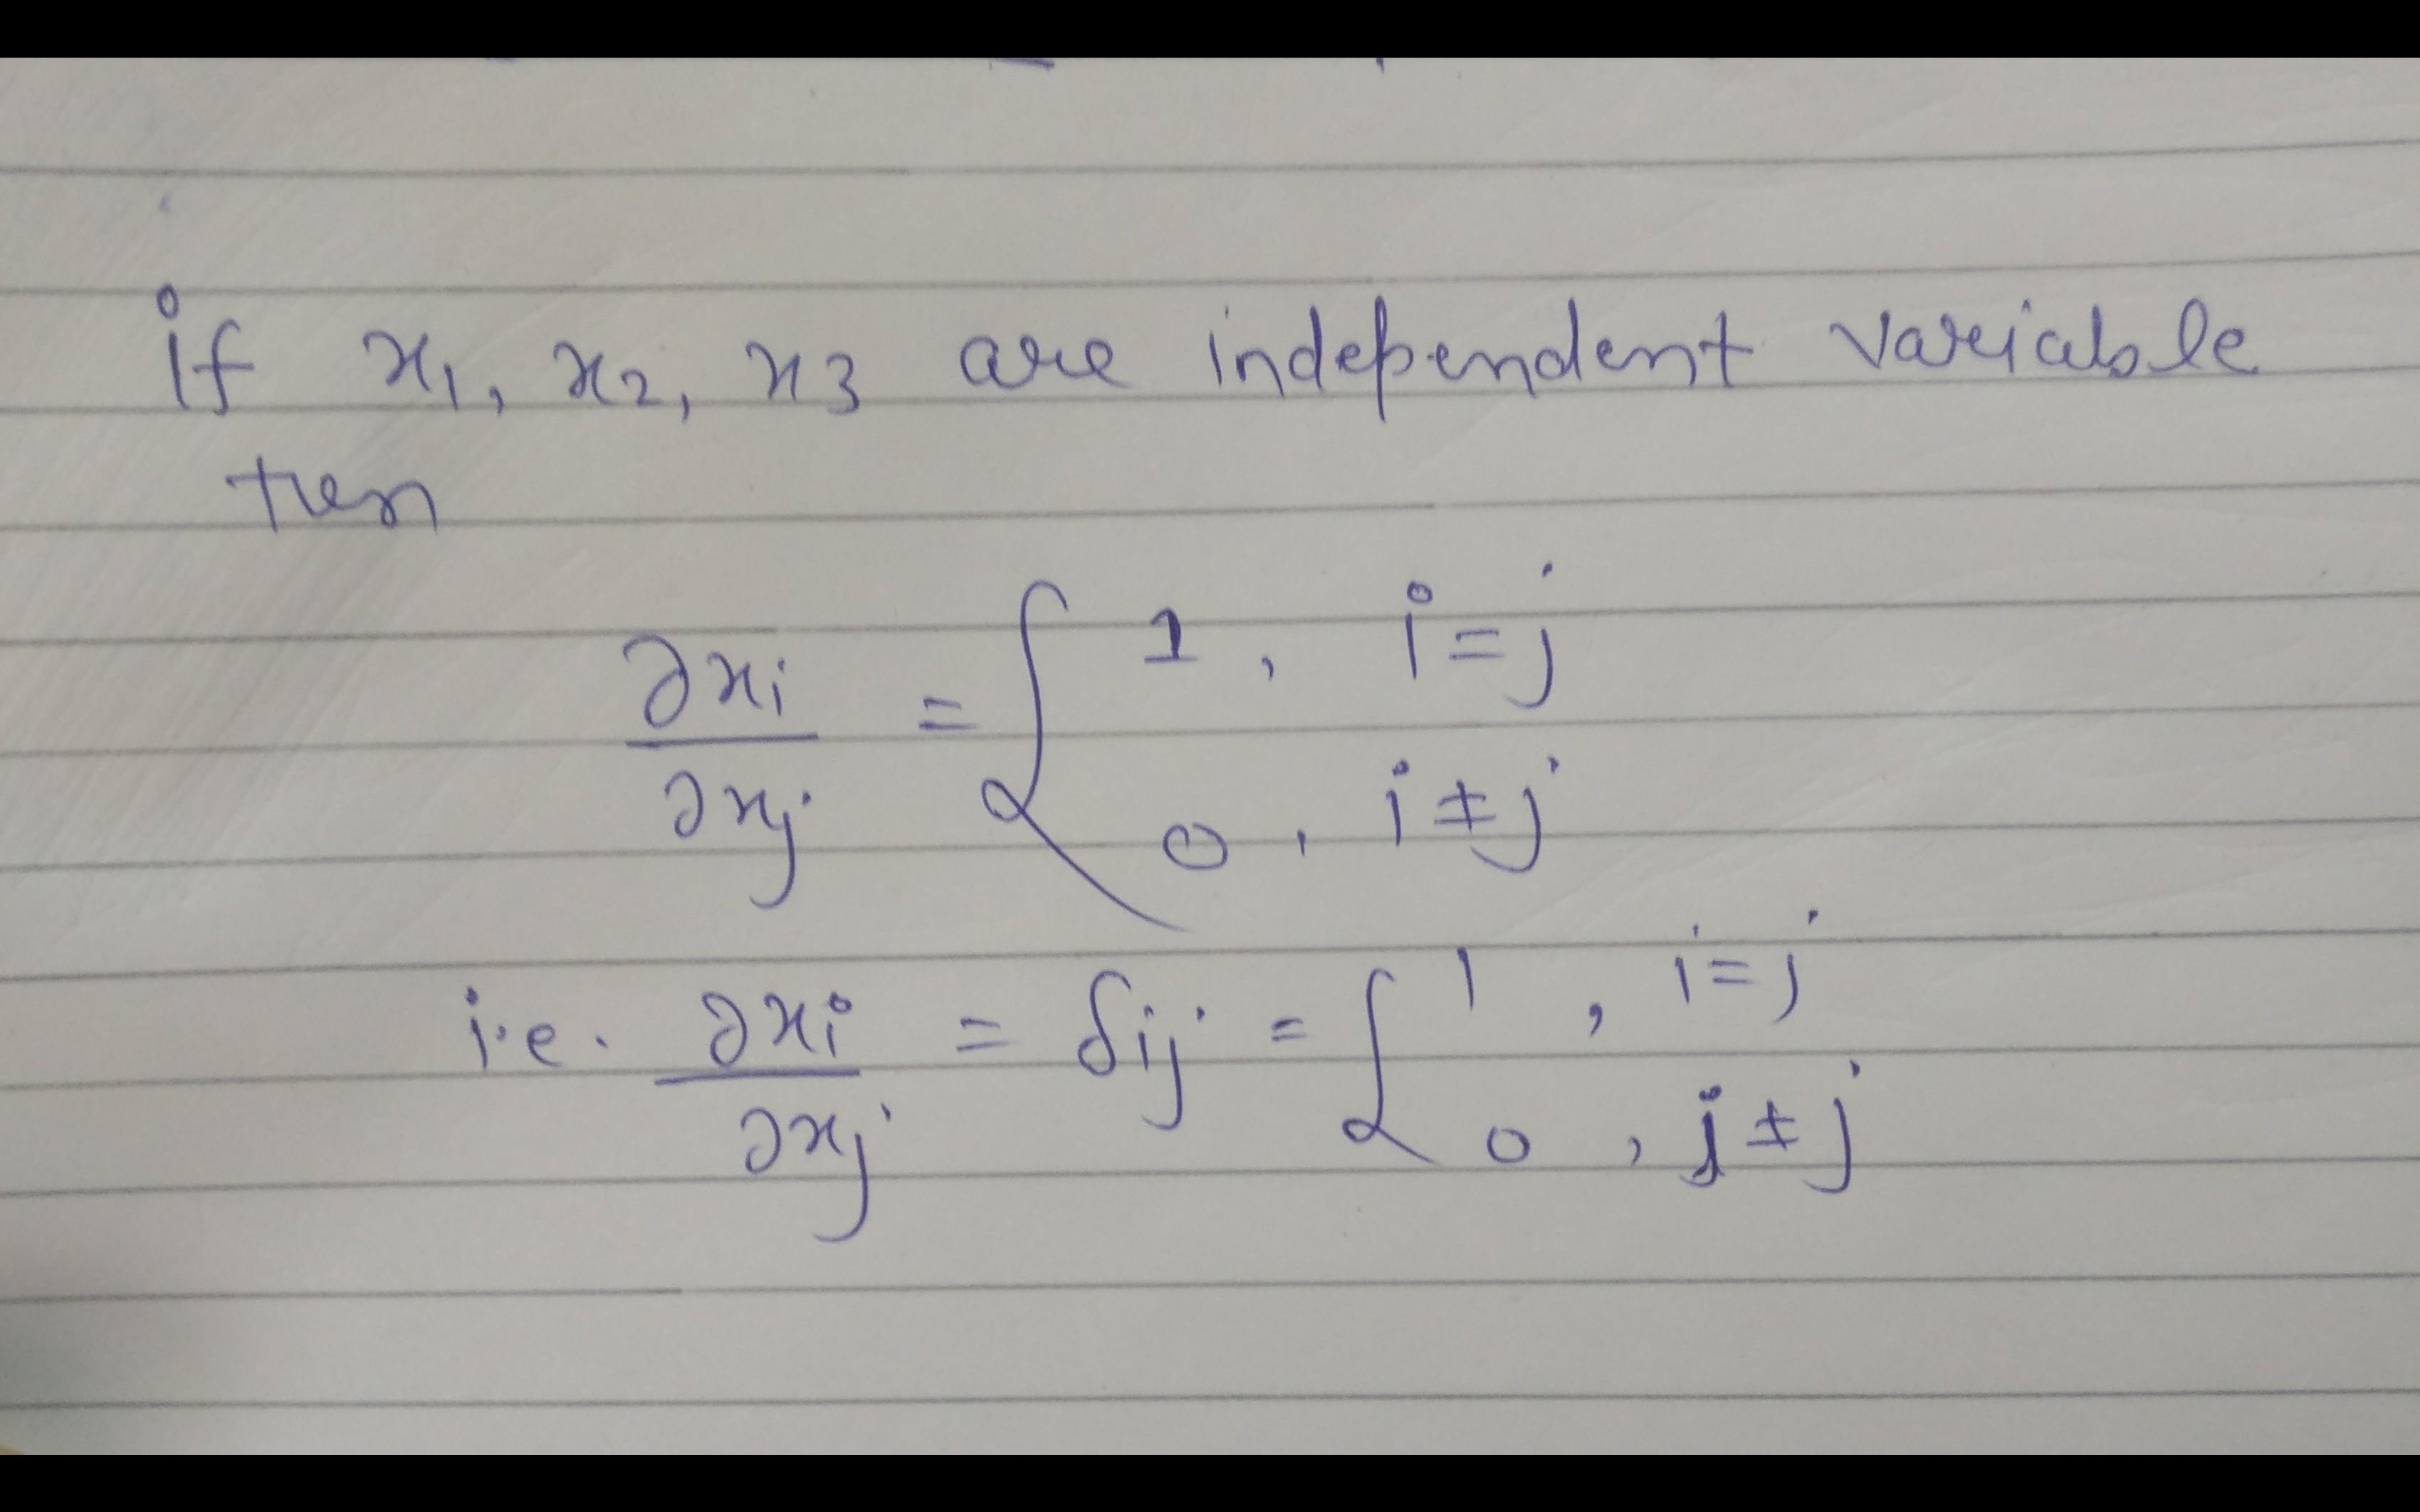 if x1, x2, x3 are independent variable
then
∂xi/∂xj = { 1, i=j
0, i≠j
i.e. ∂xi/∂xj = δij = { 1, i=j
0, j≠j